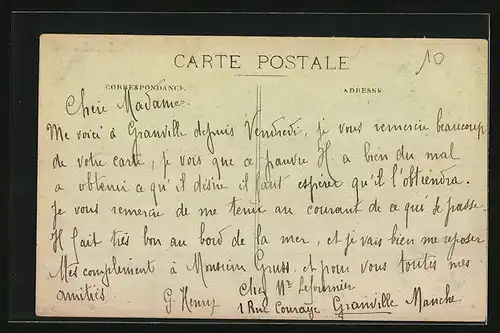 10
CARTE POSTALE
CORRESPONDANCE
ADRESSE
Chère Madame
Me voici à Granville depuis Vendredi, je vous remercie beaucoup
de votre carte, je vois que ce pauvre H. a bien du mal
a obtenir ce qu'il désire il faut espérer qu'il l'obtiendra.
Je vous remercie de me tenir au courant de ce qui se passe.
Il fait très bon au bord de la mer, et je vais bien me reposer
Mes compliment à Monsieur et pour vous toutes mes
amitiés G. Henry Chez Mr
1 Rue Granville Manche